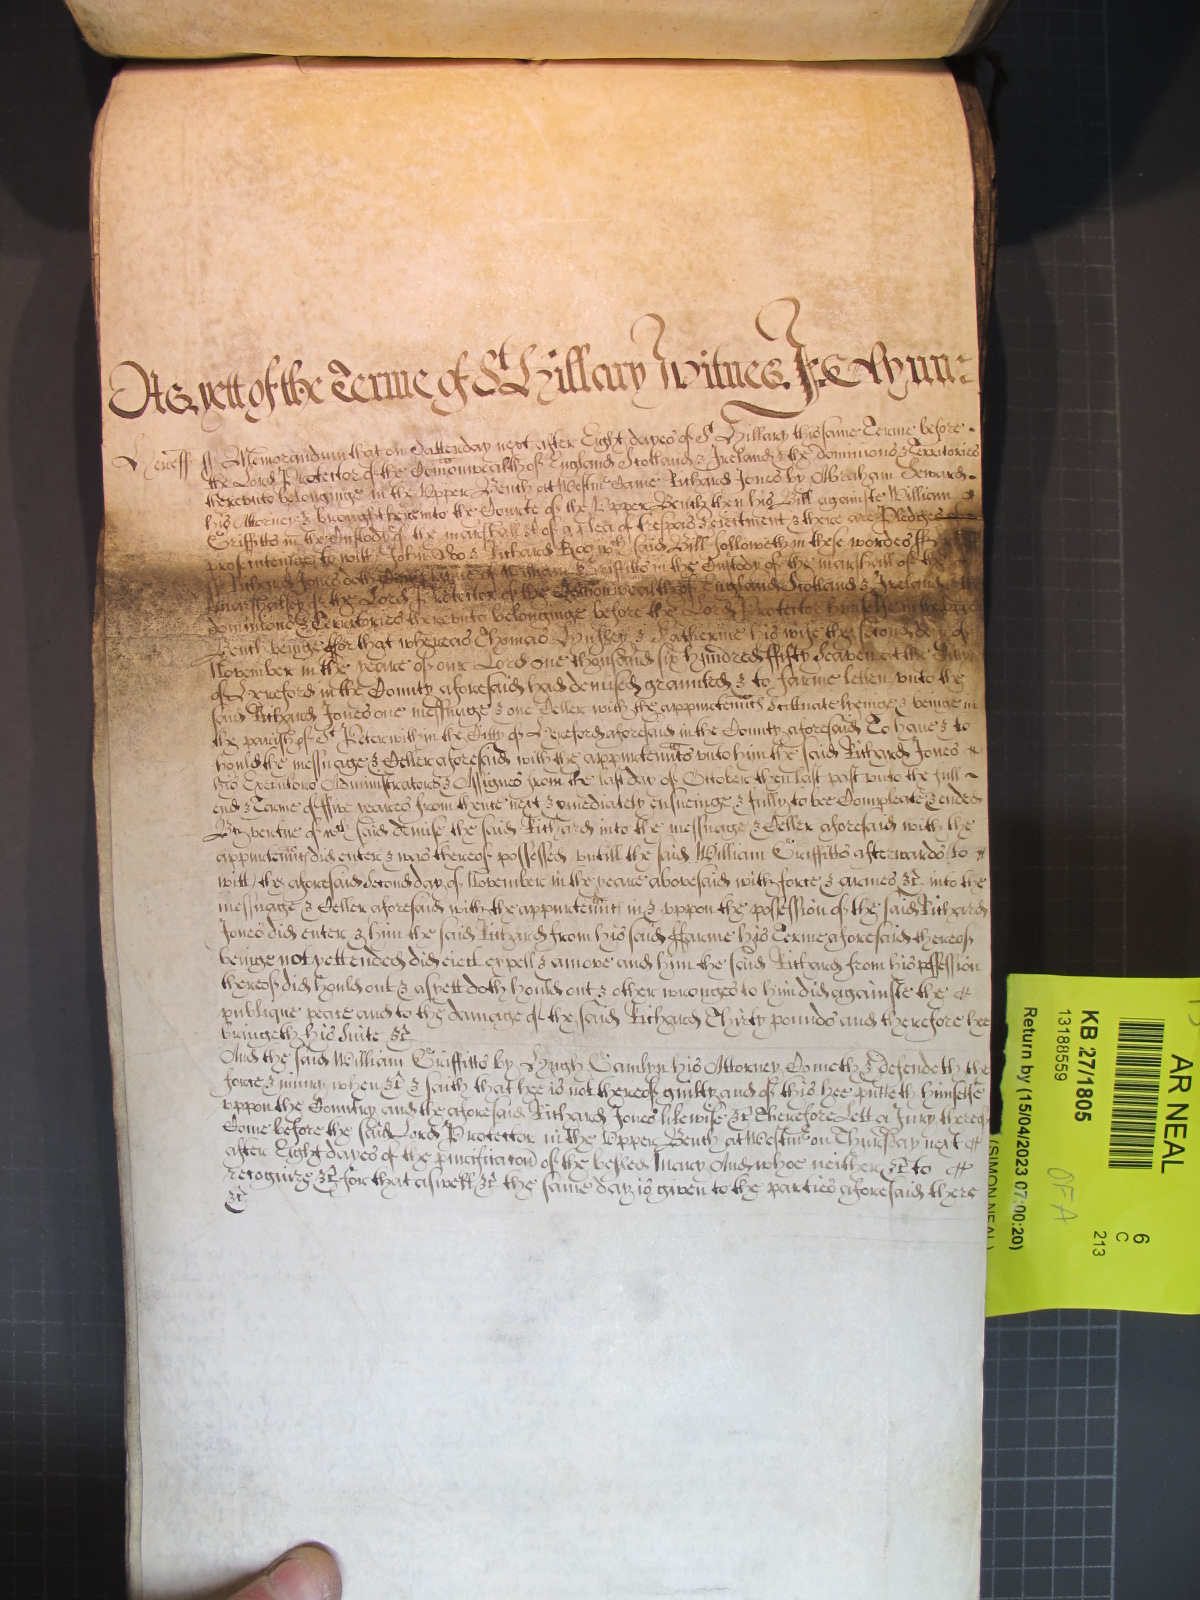 As yett of the Terme of St Hillary Witnes
Hereff ss Memorandum that on Satterday next after Eight dayes of St Hillary this same Terme before
the Lord Protector of the Comonwealth of England Scotland & Ireland & the dominions & Territories
therevnto belonginge in the Vpper Bench at Westmr Came Richard Jones by Abraham Seward
his Attorney & brought here into the Courte of the Vpper Bench then his Bill againste William
Griffitts in the Custody of the marshall &c of a plea of trespas & eiectment & there are Pledges
prosecutinge to witt John Doo & Richard Roo wch said Bill followeth in these wordes ss
ss Richard Jones doth Complaine of William Griffitts in the Custody of the marshall of the
marshallsey of the Lord Protector of the Comonwealth of England Scotland & Ireland & the
dominions & Territories therevnto belonginge before the Lord Protector himselfe in the Vpper
Bench beinge ffor that whereas Thomas & Katherine his wife the second day of
November in the yeare of our Lord one thousand six hundred ffifty Seaven at the Citty
of Hereford in the County aforesaid had demised graunted & to farme letten vnto the
said Richard Jones one messuage & one Celler with the appurtenncs Scittuate lyeinge & beinge in
the parish of St Peter within the Citty of Hereford aforesaid in the County aforesaid To have & to
hould the messuage & Celler aforesaid with the appurtenncs vnto him the said Richard Jones
his Executors Administrators & Assignes from the last day of October then last past vnto the full
end & Terme of ffive yeares from thence next & imediately ensueinge & fully to bee Compleate & ended
By vertue of wch said demise the said Richard into the messuage & Celler aforesaid with the
appurtenncs did enter & was thereof possessed vntill the said William Griffitts afterwards (to
witt) the aforesaid second day of November in the yeare abovesaid with force & armes &c into the
messuage & Celler aforesaid with the appurtenncs in & vppon the possession of the said Richard
Jones did enter & him the said Richard from his said ffarme his Terme aforesaid thereof
beinge not yett ended did eiect expell & amove and him the said Richard from his possession
thereof did hould out & as yett doth hould out & other wronges to him did againste the
publique peace and to the damage of the said Richard Thirty pounds and therefore hee
bringeth his Suite &c
And the said William Griffitts by Hugh Gamlyn his Attorney Cometh & defendeth the
force & iniury when &c & saith that hee is not thereof guilty and of this hee putteth himselfe
vppon the Country and the aforesaid Richard Jones likewise &c Therefore Lett a Jury thereof
Come before the said Lord Protector in the Vpper Bench at Westmr on Thursday next
after Eight dayes of the purificacon of the blessed Mary And whoe neither &c to
recognize &c for that aswell &c the same day is given to the parties aforesaid there
&c
AR NEAL
KB 27/1805
13188559
Return by (15/04/2023 07:00:20)
(SIMON NEAL)
OFA
6
C
213